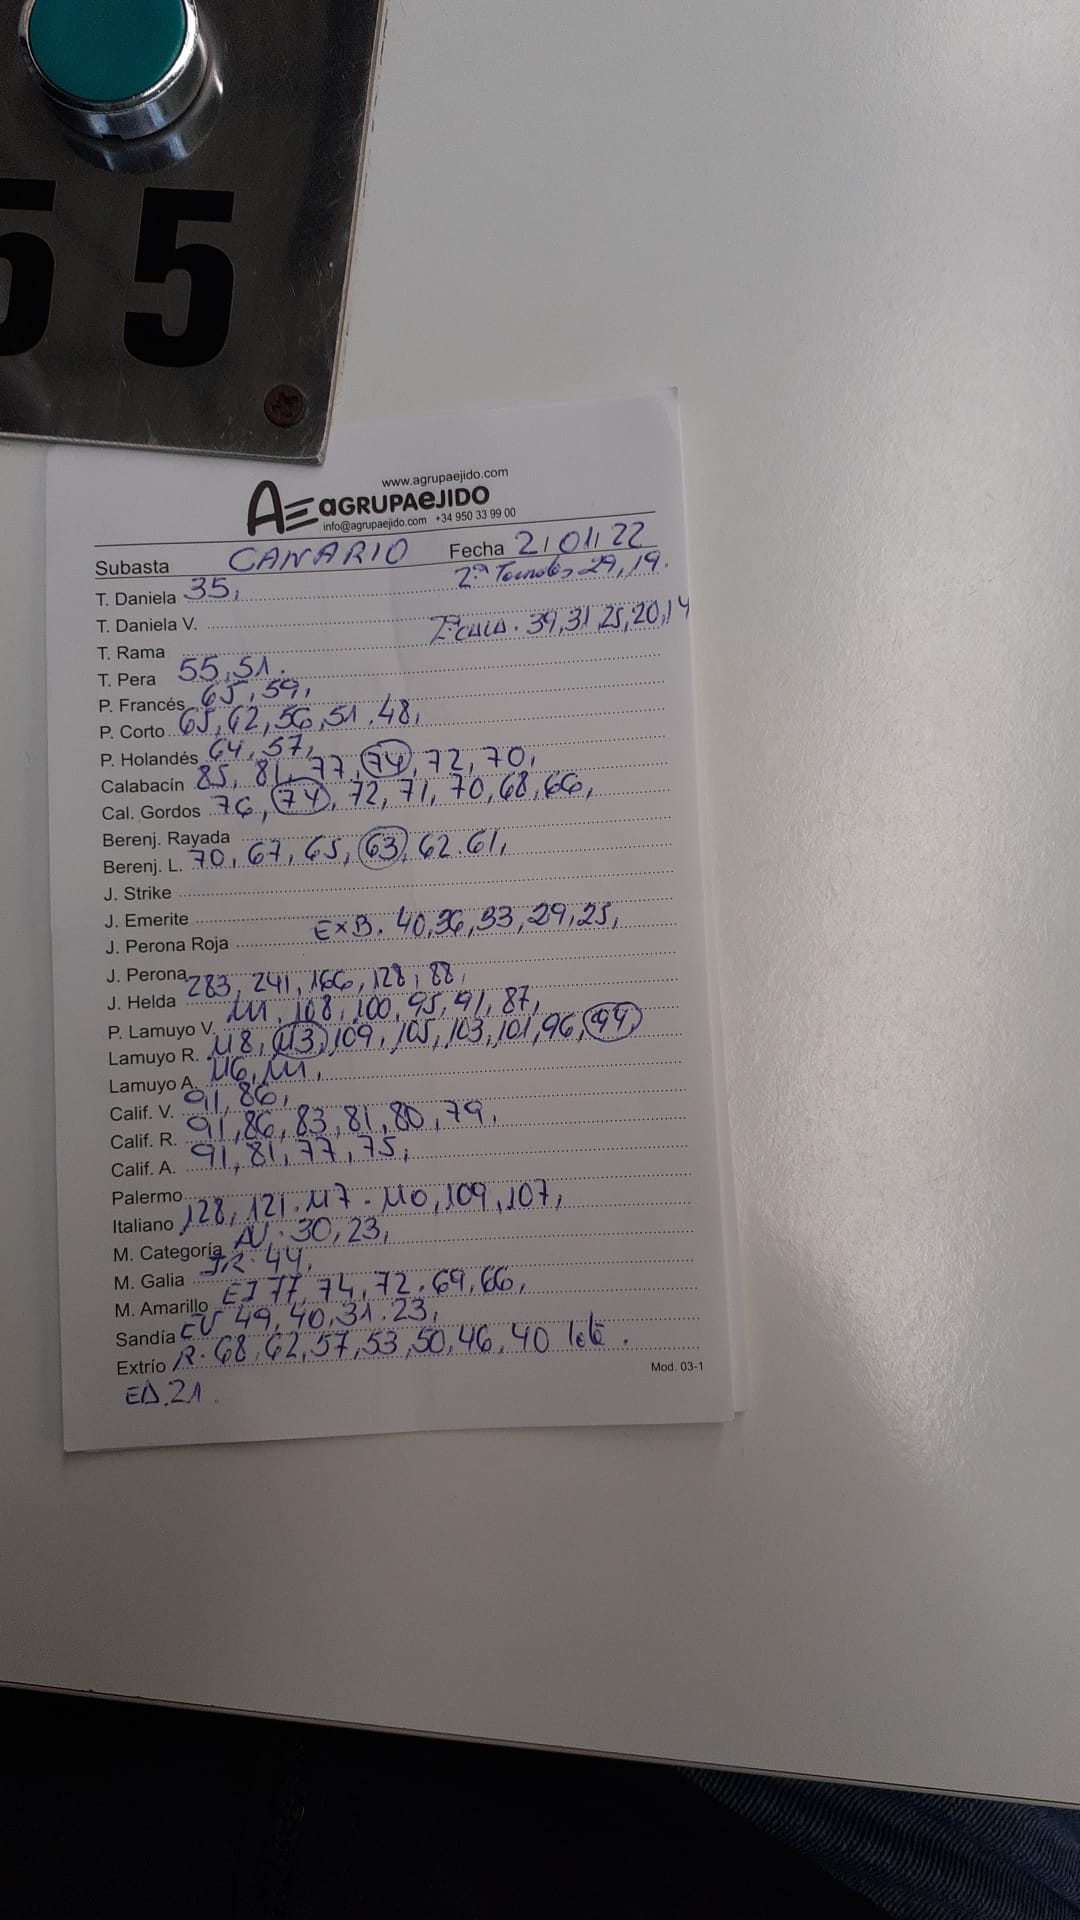 55
www.agrupaejido.com
AE aGRUPAeJIDO
info@agrupaejido.com +34 950 33 99 00
Subasta CANARIO Fecha 21 01 22
T. Daniela 35, 29, 19.
T. Daniela V.
39, 31, 25, 20, 14
T. Rama
T. Pera 55, 51.
P. Francés 65, 59,
P. Corto 65, 62, 56, 51, 48,
P. Holandés 64, 57,
Calabacín 85, 81, 77, 74, 72, 70,
Cal. Gordos 76, 74, 72, 71, 70, 68, 66,
Berenj. Rayada
Berenj. L. 70, 67, 65, 63, 62. 61,
J. Strike
J. Emerite
J. Perona Roja ExB. 40, 36, 33, 29, 25,
J. Perona
J. Helda 283, 241, 166, 128, 88,
P. Lamuyo V. 111, 108, 100, 95, 91, 87,
Lamuyo R. 118, 113, 109, 105, 103, 101, 96, 94
Lamuyo A. 116, 111,
Calif. V. 91, 86,
Calif. R. 91, 86, 83, 81, 80, 79,
Calif. A. 91, 81, 77, 75,
Palermo
Italiano 128, 121. 117. 110, 109, 107,
M. Categoría 30, 23,
M. Galia 44,
M. Amarillo EJ 77, 74, 72. 69, 66,
Sandía EV 49, 40, 31. 23,
Extrío R. 68, 62, 57, 53, 50, 46, 40
Mod. 03-1
21.